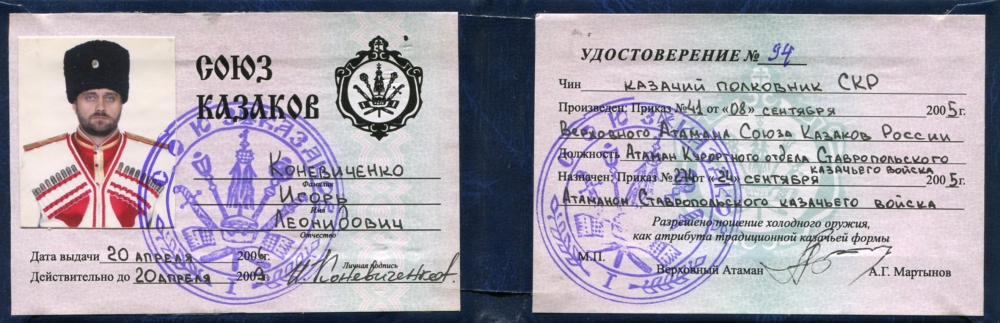 СОЮЗ
КАЗАКОВ
Коневиченко
Фамилия
Игорь
Имя
Леонидович
Отчество
Дата выдачи 20 апреля 2006г.
Личная подпись
Действительно до 20 апреля 2009 И. Коневиченков.
УДОСТОВЕРЕНИЕ № 94
Чин казачий полковник СКР
Произведен: Приказ № 41 от «08» сентября 2005г.
Верховного Атамана Союза Казаков России
Должность Атаман Курортного отдела Ставропольского
казачьего войска
Назначен: Приказ № 274 от «24» сентября 2005г.
Атаманом Ставропольского казачьего войска
Разрешено ношение холодного оружия,
как атрибута традиционной казачьей формы
М.П.
Верховный Атаман А.Г. Мартынов